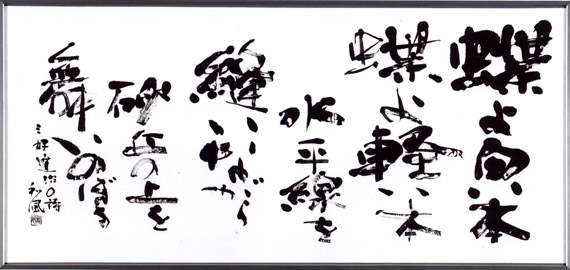 蝶よ白い本
蝶よ軽い本
水平線を
縫いながら
砂丘の上を
舞いのぼる
三好達治の詩